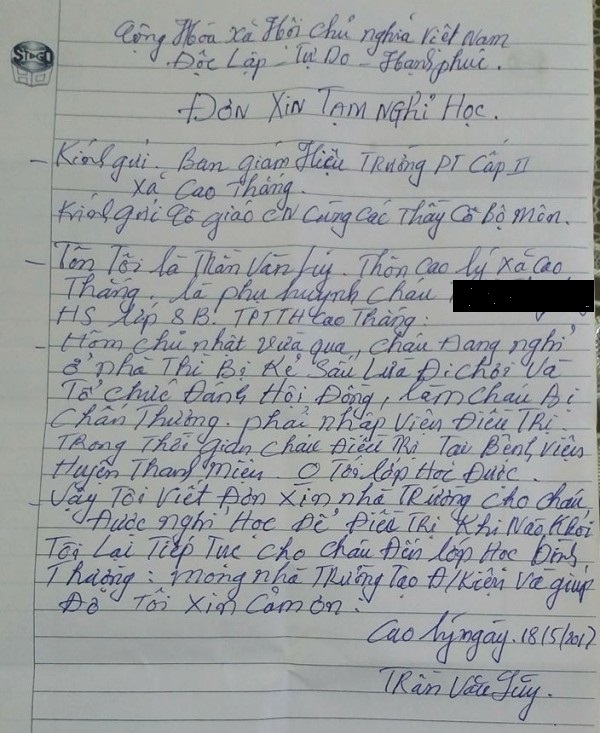 Cộng Hòa Xã Hội chủ nghĩa Việt Nam
Độc Lập - Tự Do - Hạnh phúc.
STACO
ĐƠN XIN TẠM NGHỈ HỌC.
- Kính gửi. Ban giám Hiệu TRƯỜNG PT Cấp II
Xã Cao Thắng.
Kính gửi Cô giáo CN Cùng Các Thầy Cô Bộ Môn.
- Tên Tôi là Trần Văn Lũy. Thôn Cao lý Xã Cao
Thắng. là phụ huynh cháu
HS lớp 8B. TPTTH Cao Thắng.
- Hôm chủ nhật vừa qua, cháu Đang nghỉ
ở nhà Thì Bị Kẻ Sấu Lừa Đi chơi Và
Tổ chức Đánh Hội Đồng, làm cháu Bị
Chấn Thương. phải nhập Viện Điều Trị.
Trong Thời gian cháu Điều Trị Tại Bệnh Viện
Huyện Thanh Miện. O Tới lớp Học Được.
- Vậy Tôi Viết Đơn Xin nhà Trường cho cháu
Được nghỉ Học Để Điều Trị Khi Nào Khỏi
Tôi Lại Tiếp Tục cho cháu Đến lớp Học Bình
Thường: mong nhà Trường Tạo Đ/Kiện Và giúp
Đỡ Tôi Xin Cảm ơn.
Cao lý ngày. 18/5/2017
Trần Văn Lũy.